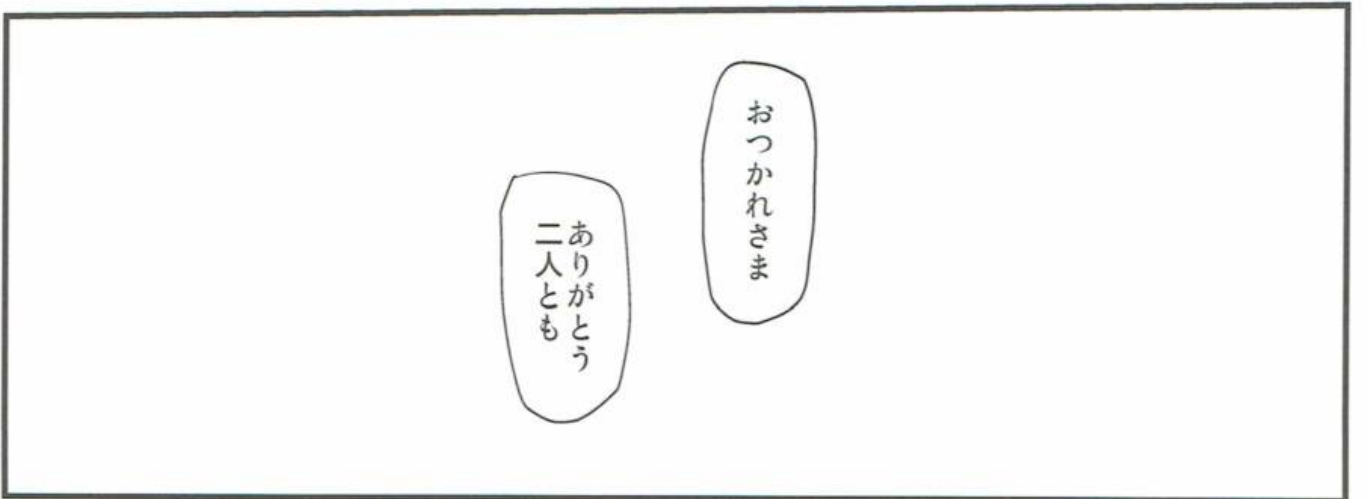 おつかれさま
ありがとう
二人とも